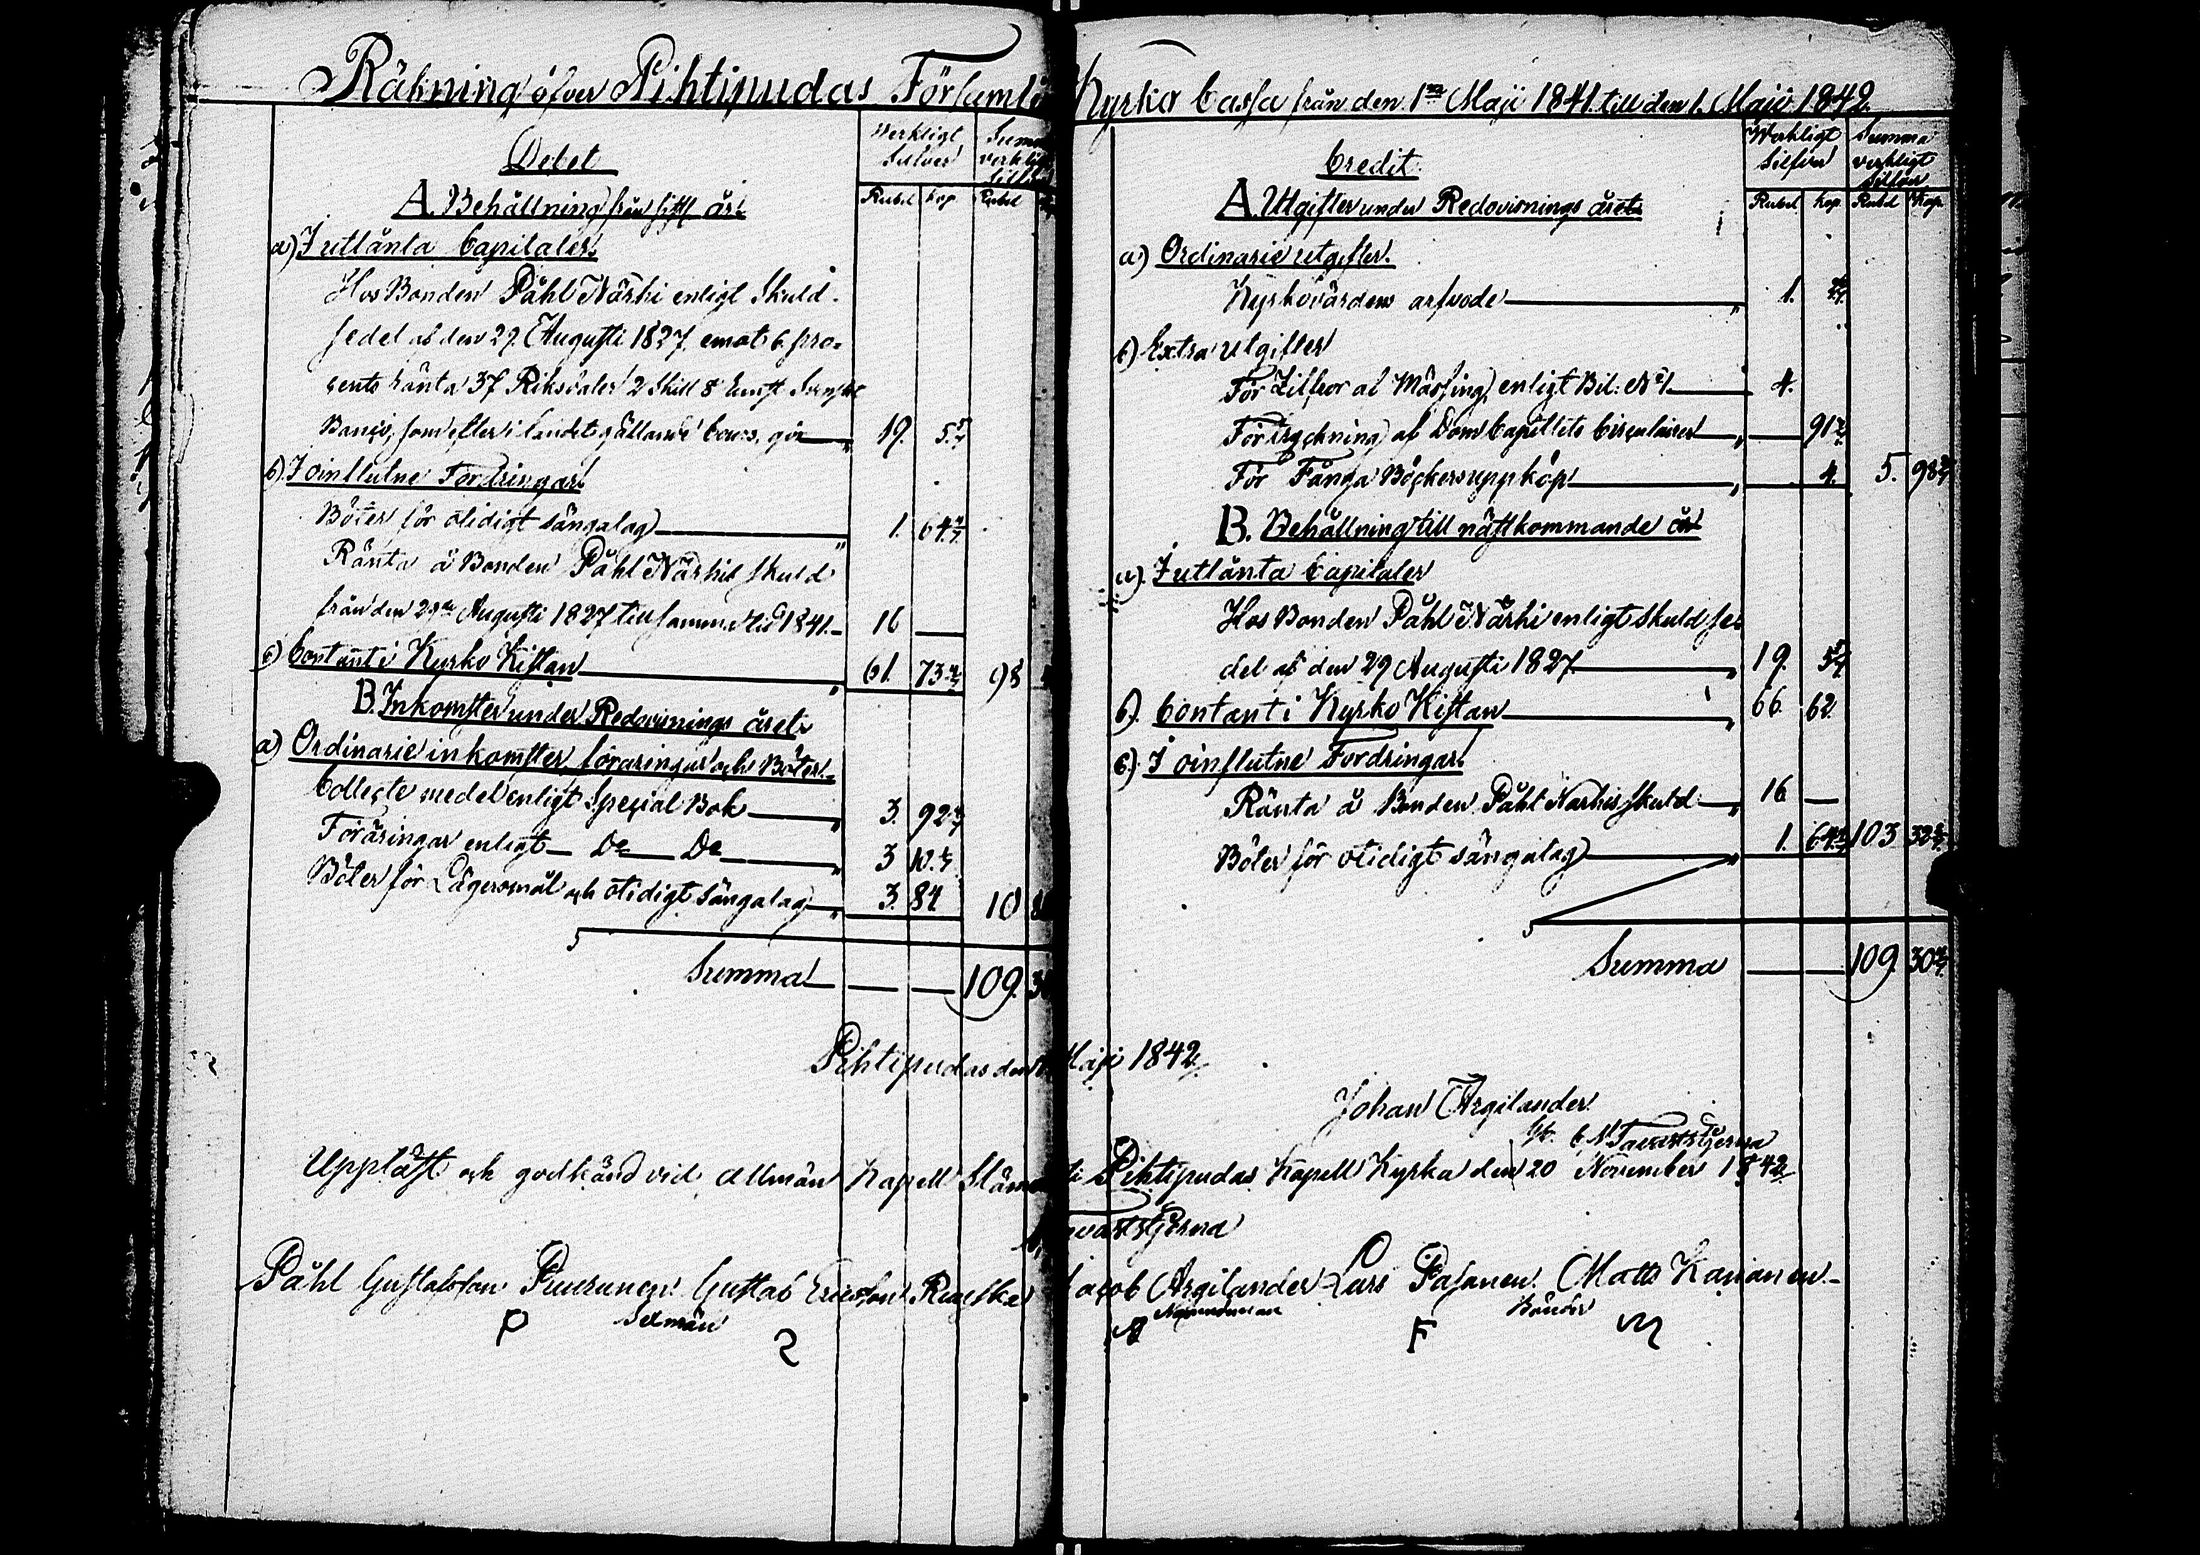 Räkning öfver Pihtipudas Församli Kyrko Cassa från den 1sta Maji 1841 till den 1. Maji 1842.
Debet
Werkligt Silfver
Rubel Kop Rubel
A. Behållning från sistl. år.
a) I utlånta Capitaler.
Hos Bonden Påhl Närhi enligt Skuld-
sedel af den 29. Augusti 1827. emot 6. pro-
cents ränta 37 Riksdaler 2 Skill 8
Banco, som efter i landet gällande Cours, gör 19. 5 5/7
b) I oinflutne Fordringar.
Böter för otidigt sängalag 1. 64 4/7
Ränta å Bonden Påhl Närhis skuld
från den 29de Augusti 1827 till samma tid 1841. 16 —
c) Contant i Kyrko Kistan 61. 73 98
B. Inkomster under Redovisnings året.
a) Ordinarie inkomster föräringar och Böter.
Collecte medel enligt Special Bok 3. 92
Föräringar enligt — Do — Do 3 10
Böter för Lägersmål och otidigt sängalag 3. 84 10
Summa — — 109. 30
Credit.
Werkligt Silfver Summa verkligt Silfver
Rubel. Kop Rubel Kop.
A. Utgifter under Redovisnings året
a) Ordinarie utgifter.
Kyrkovärdens arfvode 1. 2/7
b) Extra utgifter
För Ziffror af Mässing, enligt Bil. No 1 4.
För tryckning af Dom Capitlets Circulairer 91 2/7
För Fånga Böckers uppköp 4. 5. 98
B. Behållning till nästkommande år
a) I utlånta Capitaler
Hos Bonden Påhl Närhi enligt skuldse-
del af den 29 Augusti 1827 19. 5 5/7
b). Contant i Kyrko Kistan 66 62
c) I oinflutne Fordringar.
Ränta å Bonden Påhl Närhis skuld 16 —
Böter för otidigt sängalag 1. 64 4/7 103 32 2/7
Summa — — 109 30
Pihtipudas den Maji 1842.
Johan Argilander
Tavaststjerna
Uppläst och godkänd vid allmän Kapell Stäm i Pihtipudas Kapell Kyrka den 20 November 1842
Tavaststjerna
Påhl Gustafsson Puurunen Gustaf Ericsson Ruuska Jacob Argilander Lars Pasanen Matts Kananen
Sexmän Nämndeman Bönder
P F M